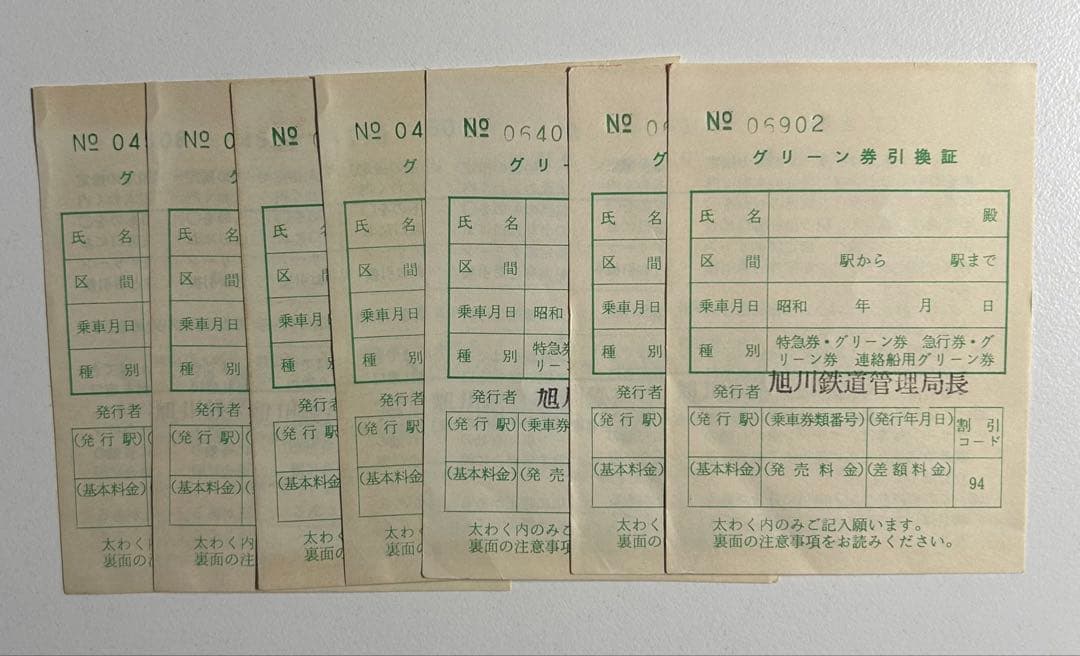 № 04
グ
氏 名
区 間
乗車月日
種 別
発行者
(発 行 駅)
(基本料金)
太わく内
裏面の注
№ 0
グ
氏 名
区 間
乗車月日
種 別
発行者
(発 行 駅)
(基本料金)
太わく内の
裏面の注
№
グ
氏 名
区 間
乗車月日
種 別
発行者
(発 行 駅)
(基本料金)
太わく内
裏面の注
№ 04
グ
氏 名
区 間
乗車月日
種 別
発行者
(発 行 駅)
(基本料金)
太わく内の
裏面の注意
№ 0640
グリー
氏 名
区 間
乗車月日 昭和
種 別 特急券
リーン
発行者 旭川
(発 行 駅) (乗車券
(基本料金) (発 売
太わく内のみご
裏面の注意事項
№ 06
グ
氏 名
区 間
乗車月日
種 別
発行者
(発 行 駅)
(基本料金)
太わく内の
裏面の注意
№ 06902
グリーン券引換証
氏 名 殿
区 間 駅から 駅まで
乗車月日 昭和 年 月 日
種 別 特急券・グリーン券 急行券・グ
リーン券 連絡船用グリーン券
発行者 旭川鉄道管理局長
(発 行 駅) (乗車券類番号) (発行年月日) 割 引
コード
(基本料金) (発 売 料 金) (差 額 料 金) 94
太わく内のみご記入願います。
裏面の注意事項をお読みください。